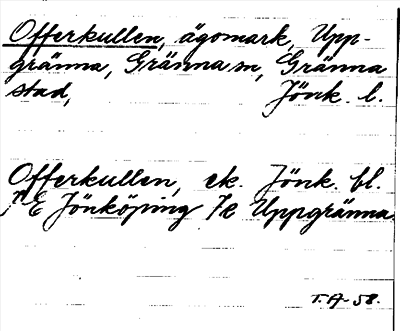 Offerkullen, ägomark, Upp-
gränna, Gränna sn, Gränna
stad, Jönk. l.
Offerkullen, ek. Jönk. bl.
E Jönköping 7e Uppgränna
T.A-58.